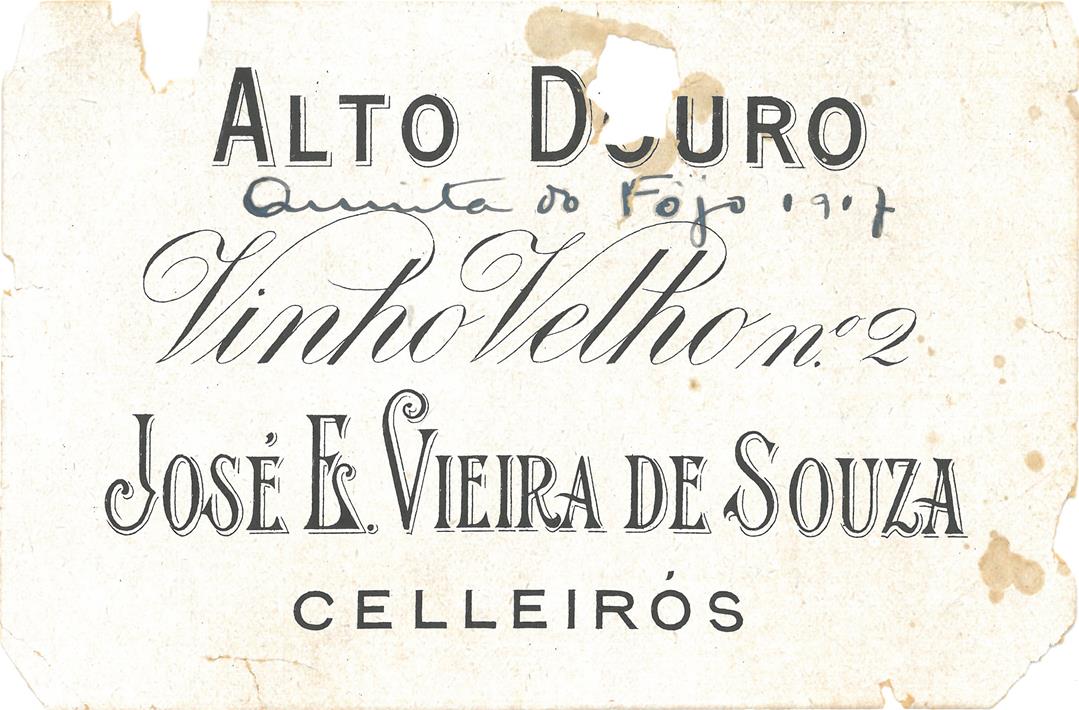 ALTO DOURO
Quinta do Fojo 1917
Vinho Velho n.º 2
JOSÉ E. VIEIRA DE SOUZA
CELLEIRÓS